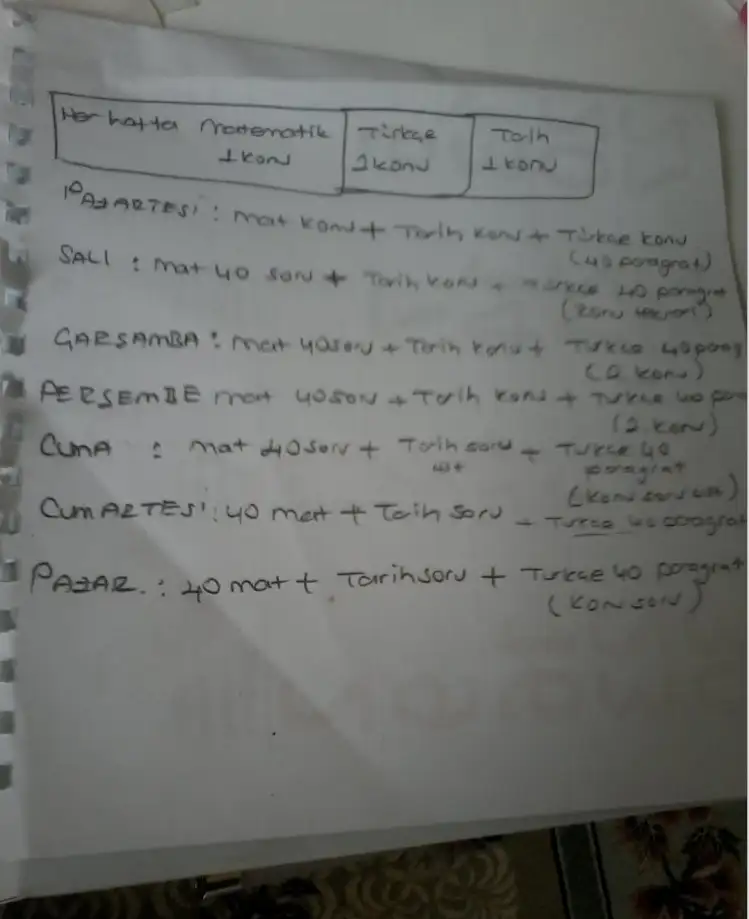 Her hafta Matematik Türkçe Tarih
1 konu 1 konu 1 konu
PAZARTESİ : mat konu + Tarih konu + Türkçe konu
(40 paragraf)
SALI : mat 40 soru + Tarih konu + Türkçe 40 paragraf
GARSAMBA : mat 40 soru + Tarih konu + Türkçe 40 parag
(2 konu)
PERSEMBE mat 40 soru + Tarih konu + Türkçe 40 par
(2 konu)
CUMA : mat 40 soru + Tarih soru + Türkçe 40
paragraf
CUMARTESİ : 40 mat + Tarih soru + Türkçe 40 paragraf
PAZAR : 40 mat + Tarih soru + Türkçe 40 paragraf
(Konu soru)